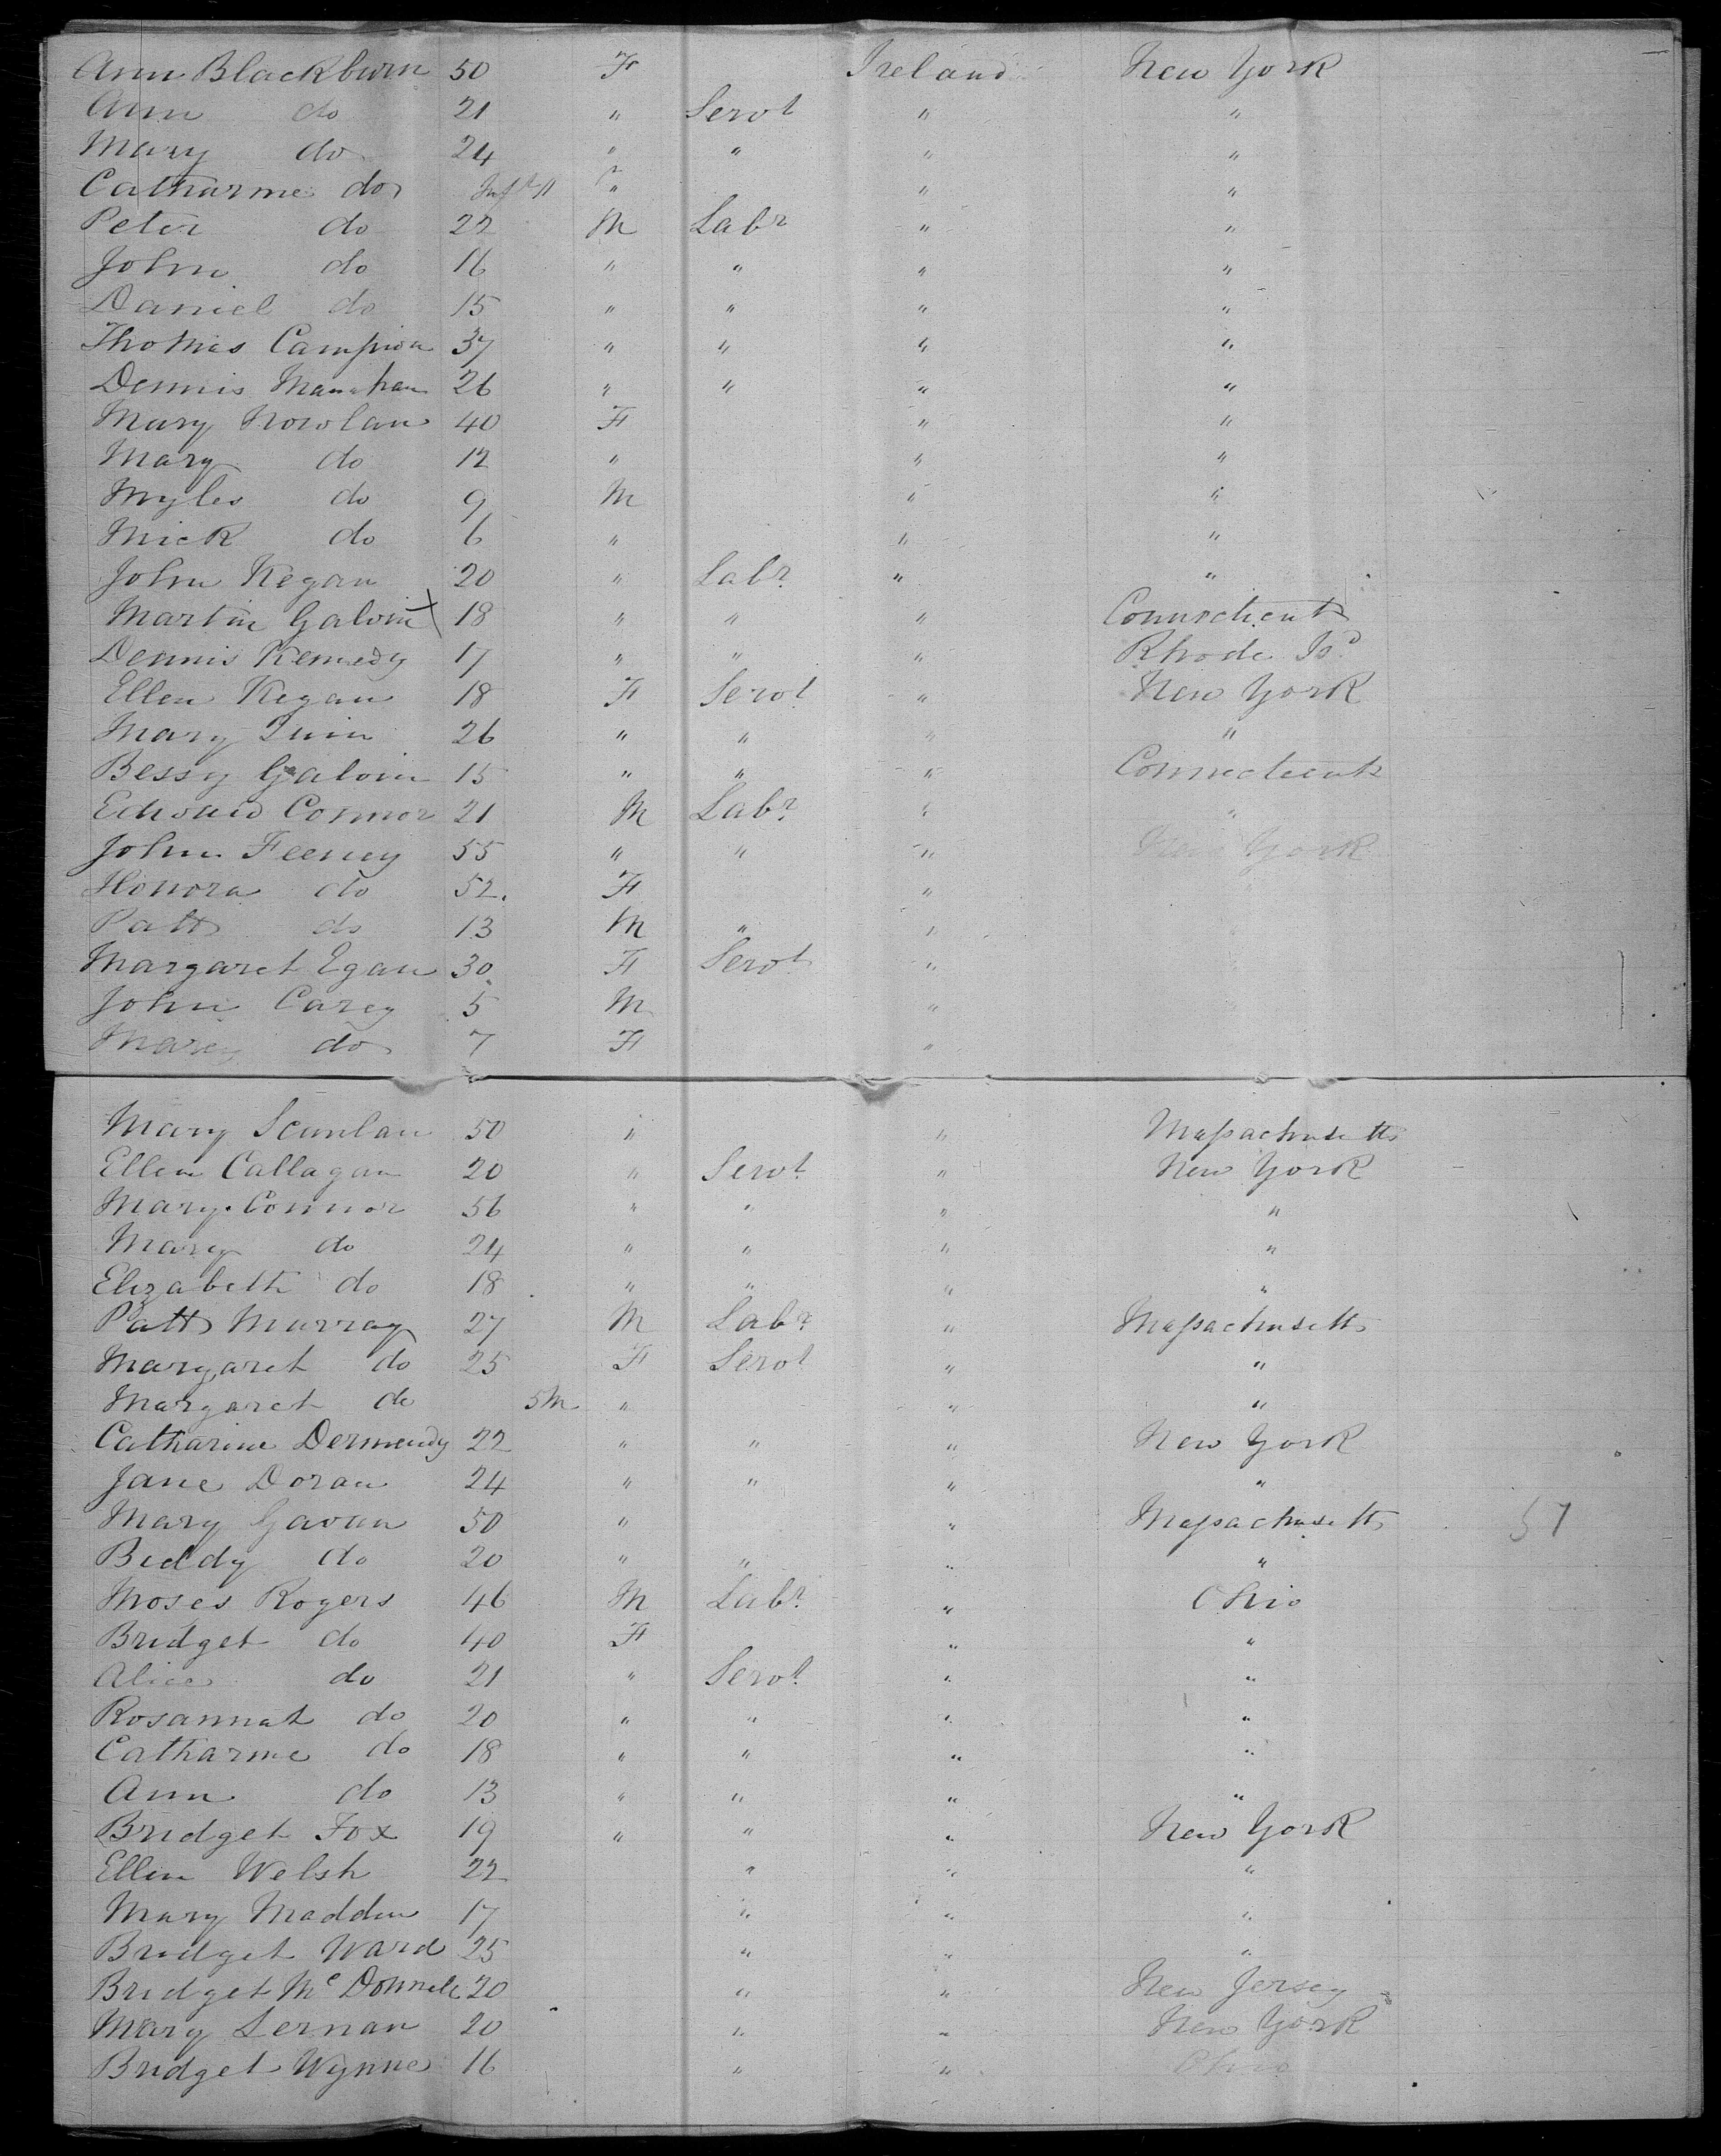 Ann Blackburn 50 F Ireland New York
Ann do 21 " Servt " "
Mary do 24 " " " "
Catharine do Inft " " "
Peter do 22 M Labr " "
John do 16 " " " "
Daniel do 15 " " " "
Thomas Campion 37 " " " "
Dennis Manahan 26 " " " "
Mary Nowlan 40 F " "
Mary do 12 " " "
Myles do 9 M " "
Mick do 6 " " "
John Kegan 20 " Labr " "
Martin Galvin 18 " " " Connecticut
Dennis Kennedy 17 " " " Rhode Isd
Ellen Kegan 18 F Servt " New York
Mary Quin 26 " " " "
Bessy Galvin 15 " " " Connecticut
Edward Connor 21 M Labr " "
John Feeney 55 " " " New York
Honora do 52. F " "
Patt do 13 M " "
Margaret Egan 30 F Servt "
John Carey 5 M "
Mary do 7 F "
Mary Scanlan 50 " " Massachusetts
Ellen Callagan 20 " Servt " New York
Mary Connor 56 " " " "
Mary do 24 " " " "
Elizabeth do 18 " " " "
Patt Murray 27 M Labr " Massachusetts
Margaret do 25 F Servt " "
Margaret do 5M " " "
Catharine Dermendy 22 " " " New York
Jane Doran 24 " " " "
Mary Gavan 50 " " Massachusetts 57
Biddy do 20 " " " "
Moses Rogers 46 M Labr " Ohio
Bridget do 40 F " "
Alice do 21 " Servt " "
Rosannah do 20 " " " "
Catharine do 18 " " " "
Ann do 13 " " " "
Bridget Fox 19 " " " New York
Ellen Welsh 22 " " "
Mary Madden 17 " " "
Bridget Ward 25 " " "
Bridget McDonnell 20 " " New Jersey
Mary Lernan 20 " " New York
Bridget Wynne 16 " " Ohio